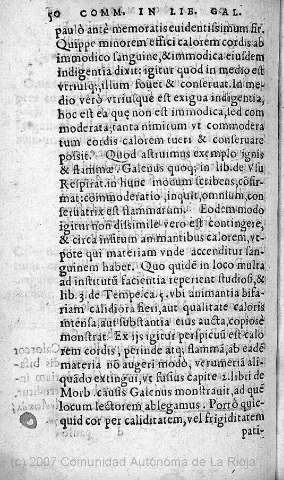 50 COMM. IN LIB. GAL.
paulò antè memoratis euidentissimum fit.
Quippe minorem effici calorem cordis ab
immodico sanguine, & immodica eiusdem
indigentia dixit: igitur quod in medio est
vtriusq;, illum fouet & conseruat. In me-
dio verò vtriusque est exigua indigentia,
hoc est ea que non est immodica, sed com
moderata, tanta nimirum vt commodera
tum cordis calorem tueri & conseruare
possit. Quod astruimus exemplo ignis
& flammæ. Galenus quoq; in lib. de Vsu
Respirat. in hunc modum scribens, cōfir-
mat: commoderatio, inquit, omnium, con
seruatrix est flammarum. Eodem modo
igitur non dissimile vero est contingere,
& circa insitum animantibus calorem, vt-
pote qui materiam vnde accenditur san-
guinem habet. Quo quidē in loco multa
ad institutū facientia reperient studiosi, &
lib. 3. de Tempe. ca. 5. vbi animantia bifa-
riam calidiora fieri, aut qualitate caloris
intensa, aut substantia eius aucta, copiosè
monstrat. Ex ijs igitur perspicuū est calo
rem cordis, perinde atq; flammā, ab eadē
materia nō augeri modò, verumetiā ali-
quādo extingui, vt fusius capite 2. libri de
Morb. causis Galenus monstrauit, ad quē
locum lectorem ablegamus. Porrò quic-
quid cor per caliditatem, vel frigiditatem
pati-
(c) 2007 Comunidad Autónoma de La Rioja